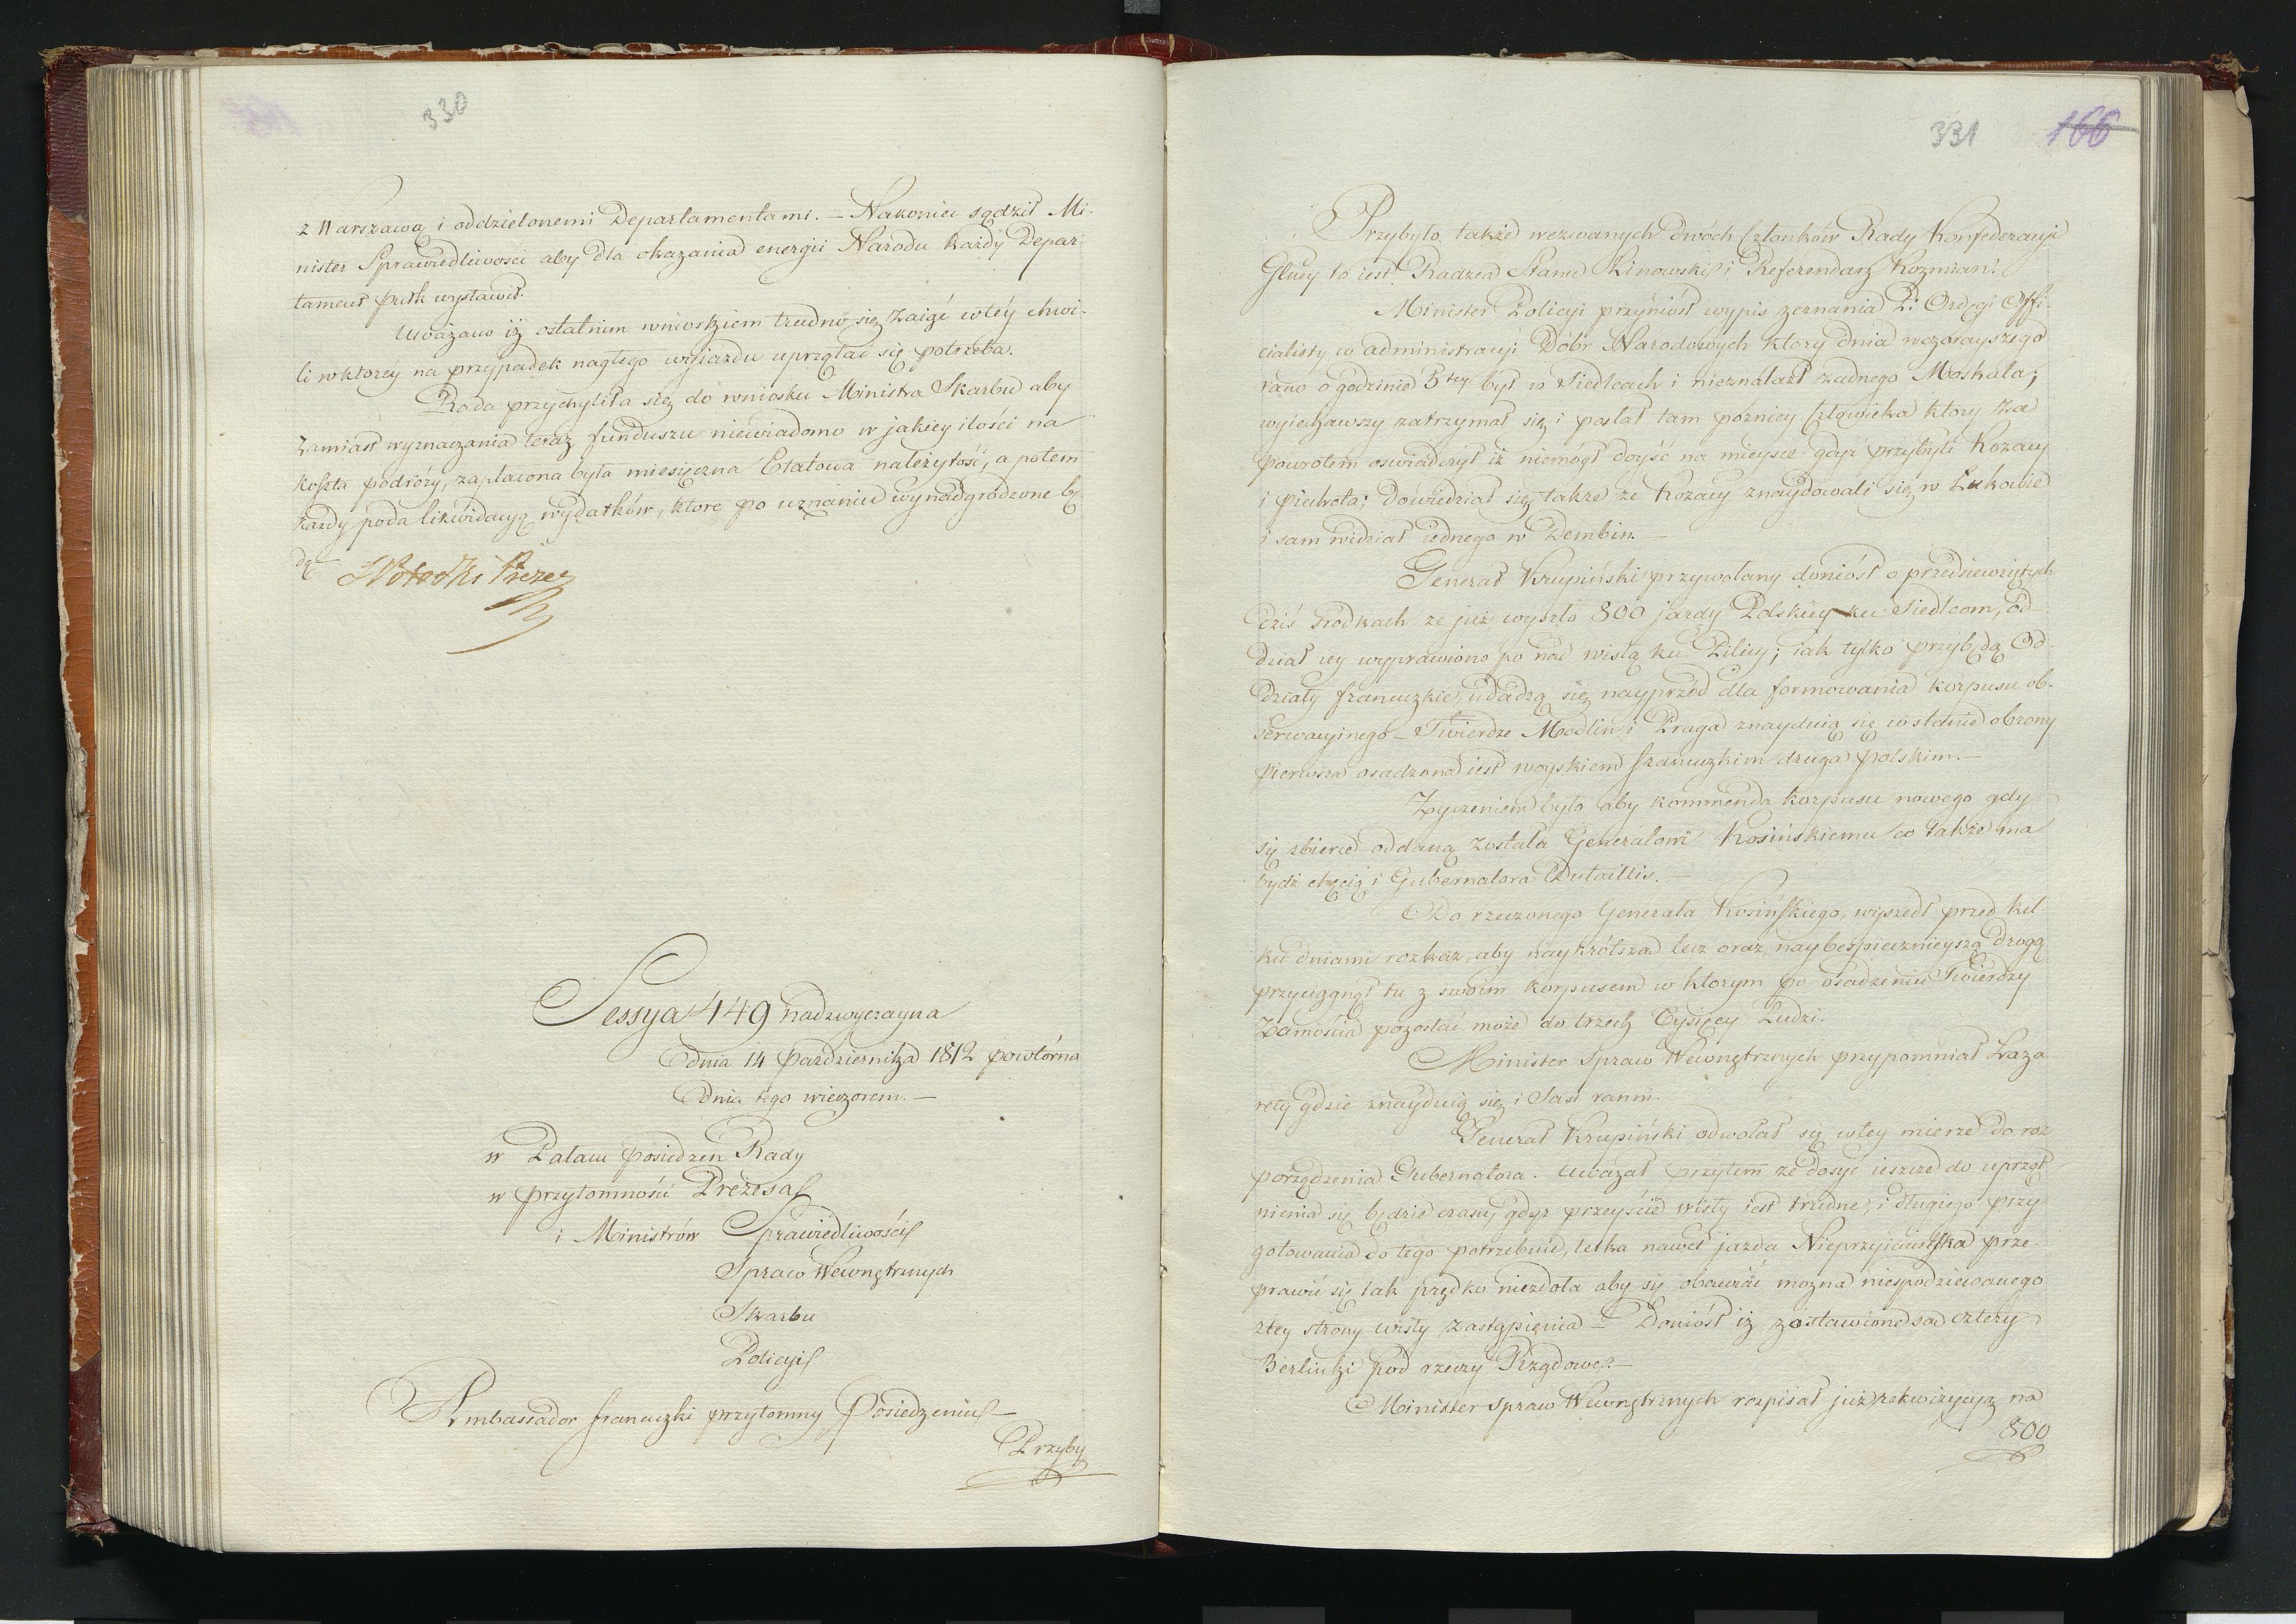 330
z Warszawą i oddzielonemi Departamentami. — Nakoniec sądził Mi-
nister Sprawiedliwosci aby dla okazania energii Narodu każdy Depar-
tament pułk wystawił.
Uważano iż ostatnim wnioskiem trudno się zaigć w téy chwi-
li w ktoréy na przypadek nagłego wyiazdu uprzątać się potrzeba.
Rada przychyliła się do wniosku Ministra Skarbu aby
zamiast wyznaczania teraz funduszu niewiadomo w jakiey ilości na
koszta podróży, zapłacona była miesięczna Etatowa należytość, a potem
każdy poda likwidacyą wydatków, ktore po uznaniu wynadgrodzone bę
dą
Potocki Prezes
Sessya 449 nadzwyczayna
dnia 14 Pazdziernika 1812 powtórna
dnia tego wieczorem. —
w Pałacu posiedzeń Rady
w przytomności Prezesa
i Ministrów Sprawiedliwości
Spraw Wewnętrznych
Skarbu
Policyi
Ambassador francuzki przytomny Posiedzeniu —
Przyby
331 166
Przybyło także wezwanych dwoch Członków Rady Konfederacyi
Głuey to iest Radzca Stanu Linowski i Referendarz Kozmian.
Minister Policyi przyniósł wypis zeznania P: Ordęgi Offi-
cialisty w administracyi Dóbr Narodowych ktory dnia wczorayszego
rano o godzinie 5tey był w Siedlcach i nieznalazł żadnego Moskala;
wyiechawszy zatrzymał się i posłał tam pózniey Człowieka ktory za
powrotem oswiadczył iż niemógł doyść na mieysce gdyż przybyli Kozacy
i piechota; Dowiedział się także że Kozacy znaydowali się w Łukowie
i sam widział iednego w Dembin. —
Generał Krupiński przywołany doniósł o przedsiewziętych
dziś srodkach że już wyszło 800 jazdy Polskiey ku Siedlcom, od-
dział iey wyprawiono po nad wisłą ku Pilicy; iak tylko przybędą Od-
działy francuzkie, udadzą się nayprzód dla formowania korpusu ob-
serwacyinego — Twierdze Modlin i Praga znayduią się w stanie obrony
pierwsza osadzona iest woyskiem francuzkim druga polskim. —
Życzeniem było aby kommenda korpusu nowego gdy
się zbierze oddaną została Generałowi Kosińskiemu co także ma
bydź chęcią i Gubernatora Dutaillis. —
Do rzeczonego Generała Kosińskiego, wyszedł przed kil-
ku dniami rozkaz, aby naykrótszą lecz oraz naybespiecznieyszą drogą
przyciągnął tu z swoim korpusem w ktorym po osadzeniu Twierdzy
Zamościa pozostać może do trzech Tysięcy Ludzi.
Minister Spraw Wewnętrznych przypomniał Laza
rety gdzie znayduią się i Sasi ranni.
Generał Krupiński odwołał się w tey mierze do roz
porządzenia Gubernatora. Uważał przytem że dosyć ieszcze do uprząt
nienia się będzie czasu, gdyż przeyście wisły iest trudne, i długiego przy
gotowania do tego potrzebuie, lekka nawet jazda Nieprzyiacielska prze-
prawić się tak prędko niezdoła aby się obawiać można niespodziewanego
z tey strony wisły zastąpienia — Doniósł iż zostawione są cztery
Berlinki pod rzeczy Rządowe. —
Minister Spraw Wewnętrznych rozpisał już rekwizycyą na
800